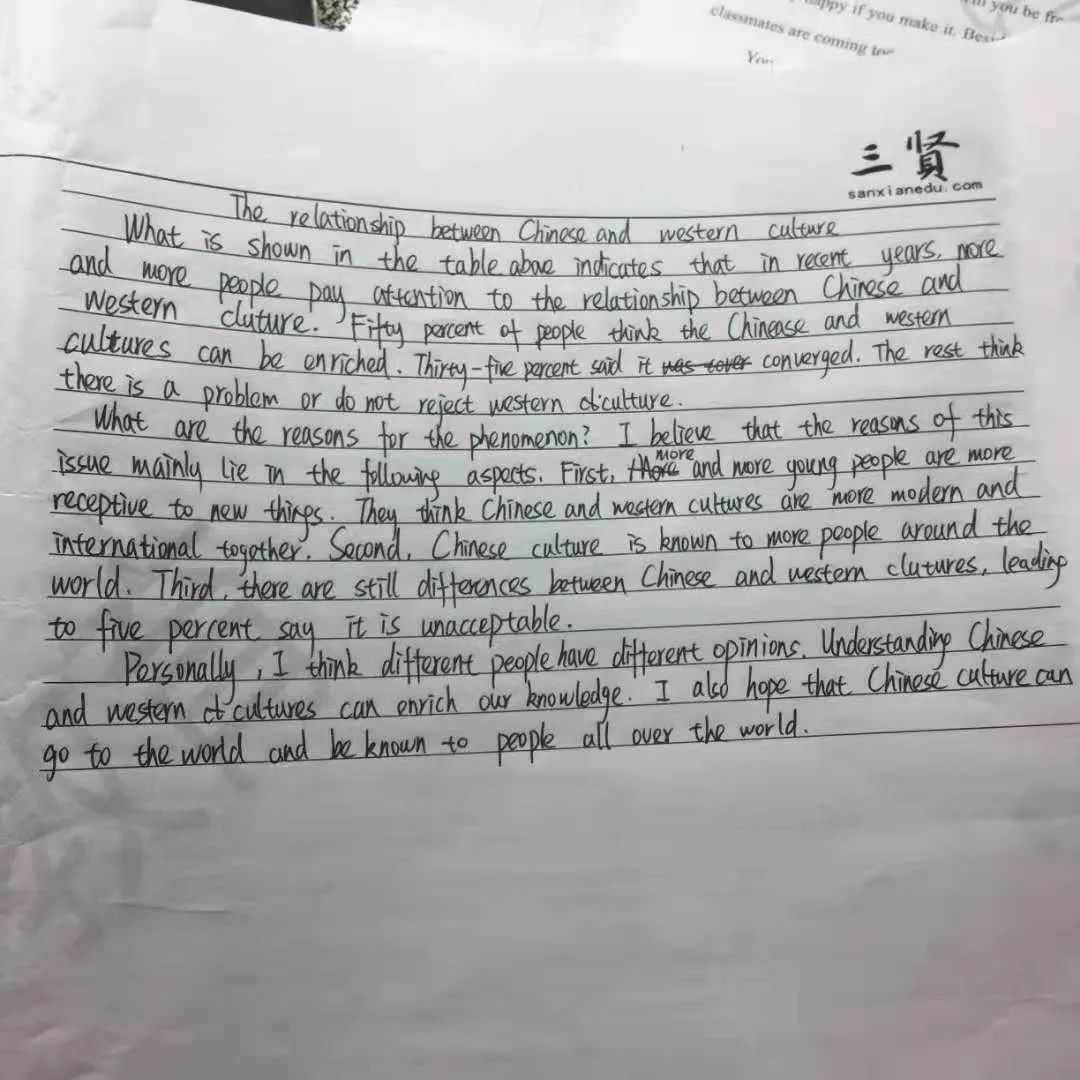 you be
happy if you make it.
classmates are coming
三贤
sanxianedu.com
The relationship between Chinese and western culture
What is shown in the table abae indicates that in recent years, more
and more people pay attention to the relationship between Chinese and
Western cluture. Fifty percent of people think the Chinease and western
cultures can be enriched. Thirty-five percent said it was converged. The rest think
there is a problem or do not reject western culture.
What are the reasons for the phenomenon? I believe that the reasons of this
issue mainly lie in the following aspects. First, more and more young people are more
receptive to new things. They think Chinese and western cultures are more modern and
international together. Second, Chinese culture is known to more people around the
world. Third, there are still differences between Chinese and western clutures, leading
to five percent say it is unacceptable.
Personally, I think different people have different opinions. Understanding Chinese
and western cultures can enrich our knowledge. I also hope that Chinese culture can
go to the world and be known to people all over the world.